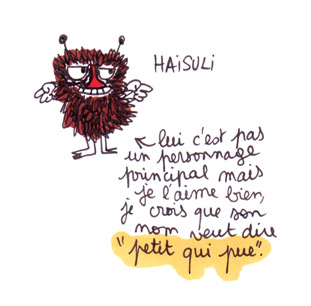 HAiSULi
lui c'est pas
un personnage
principal mais
je l'aime bien,
je crois que son
nom veut dire
"petit qui pue".